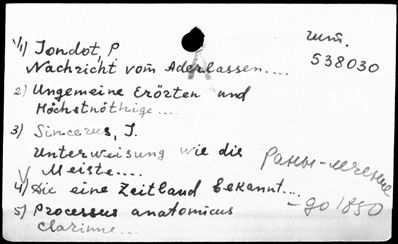 1) Jondot, P
чит.
538030
Nachricht vom Aderlassen....
2) Ungemeine Erörten und
Höchstnöthige....
3) Sincerus, J.
Unterweisung wie die
Meiste....
Раны-лечение
4) Die eine Zeitland bekannt...
- до 1850
5) Processus anatomicus
clarinne...